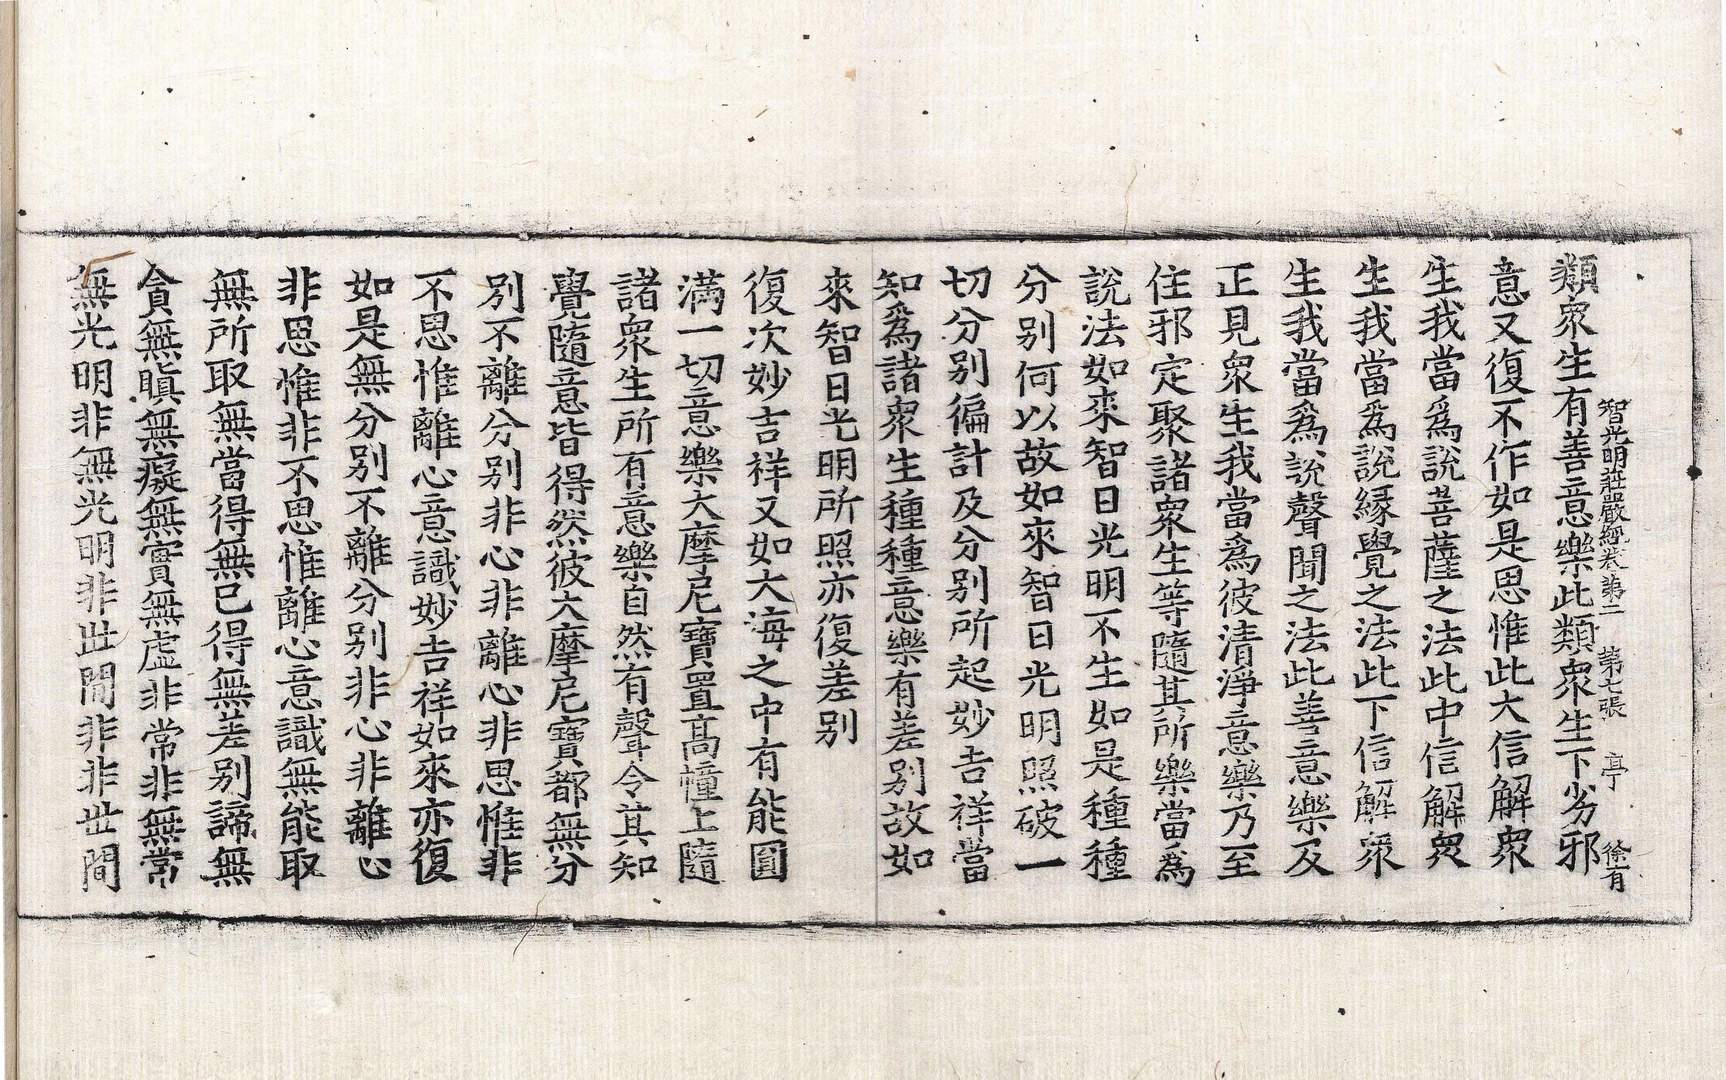 智光明莊嚴經卷第二　第七張　亭　徐有
類衆生有善意樂此類衆生下劣邪
意又復不作如是思惟此大信解衆
生我當爲說菩薩之法此中信解衆
生我當爲說緣覺之法此下信解衆
生我當爲說聲聞之法此善意樂及
正見衆生我當爲彼清淨意樂乃至
住邪定聚諸衆生等隨其所樂當爲
說法如來智日光明不生如是種種
分別何以故如來智日光明照破一
切分別徧計及分別所起妙吉祥當
知爲諸衆生種種意樂有差別故如
來智日光明所照亦復差別
復次妙吉祥又如大海之中有能圓
滿一切意樂大摩尼寶置高幢上隨
諸衆生所有意樂自然有聲令其知
覺隨意皆得然彼大摩尼寶都無分
別不離分別非心非離心非思惟非
不思惟離心意識妙吉祥如來亦復
如是無分別不離分別非心非離心
非思惟非不思惟離心意識無能取
無所取無當得無已得無差別諦無
貪無瞋無癡無實無虛非常非無常
無光明非無光明非世間非非世間